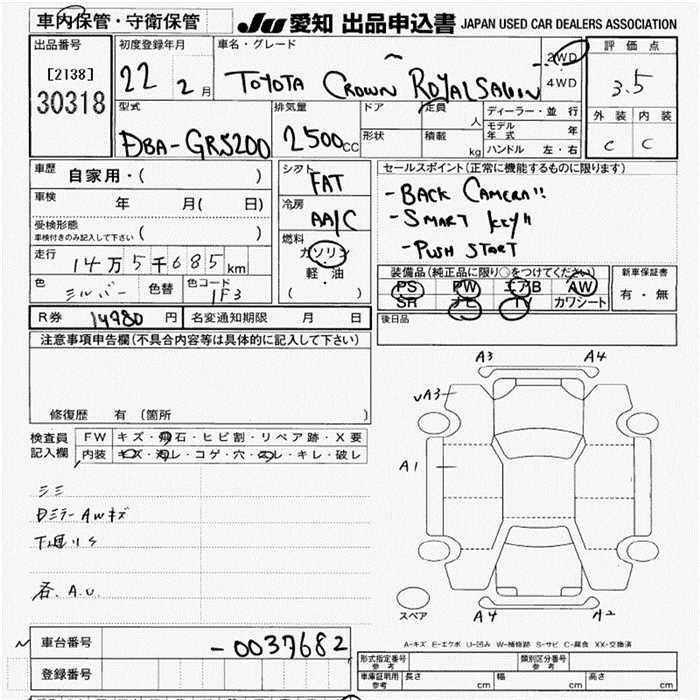 車内保管・守衛保管 JU 愛知 出品申込書 JAPAN USED CAR DEALERS ASSOCIATION
出品番号 初度登録年月 車名・グレード 2WD 評価点
[2138] 22 2月 TOYOTA CROWN ROYAL SALOON 4WD 3.5
30318
型式 排気量 ドア 定員 人 ディーラー・並行 外装 内装
DBA-GRS200 2500cc 形状 積載 kg モデル年式 年 C C
ハンドル 左・右
車歴 自家用・( ) シフト FAT セールスポイント(正常に機能するものに限ります)
車検 年 月( 日) 冷房 AA/C - BACK CAMERA!!
受検形態 - SMART KEY!!
車検付きのみ記入して下さい ( ) 燃料 - PUSH START
走行 14万5千685km ガソリン
軽・油
色 シルバー 色替 色コード 1F3 ( )
装備品(純正品に限り○をつけてください) 新車保証書
PS PW エアB AW 有・無
SR ナビ TV カワシート
R券 14980円 名変通知期限 月 日 後日品
注意事項申告欄(不具合内容等は具体的に記入して下さい)
修復歴 有(箇所 )
検査員記入欄 FW キズ・飛石・ヒビ割・リペア跡・X要
内装 キズ・汚レ・コゲ・穴・スレ・キレ・破レ
A3 A4
A3
A1
ミミ
AWキズ
下廻りS
各.A.U.
スペア A4 A2
A-キズ E-エクボ U-凹み W-補修跡 S-サビ C-腐食 XX-交換済
車台番号 -0037682
登録番号
形式指定番号 参考 類別区分番号 参考
車庫証明用 参考 長さ cm 幅 cm 高さ cm